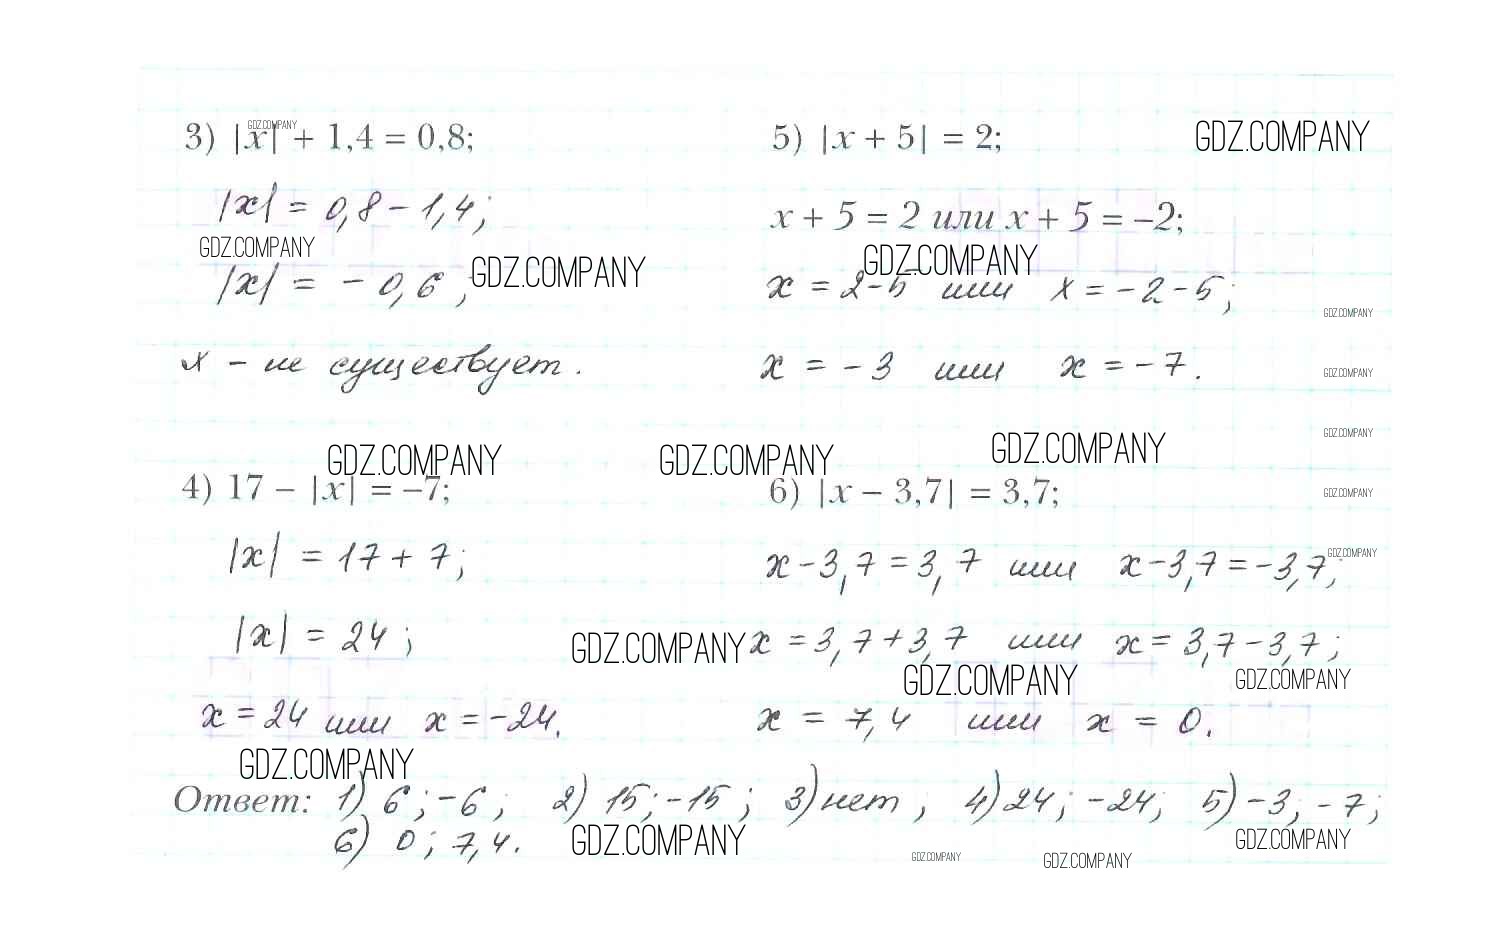 3) |x| + 1,4 = 0,8;
GDZ.COMPANY
|x| = 0,8 - 1,4;
GDZ.COMPANY
|x| = - 0,6;
GDZ.COMPANY
x - не существует.
5) |x + 5| = 2;
GDZ.COMPANY
x + 5 = 2 или x + 5 = –2;
GDZ.COMPANY
x = 2-5 или x = -2-5;
GDZ.COMPANY
x = -3 или x = -7.
GDZ.COMPANY
GDZ.COMPANY
GDZ.COMPANY
GDZ.COMPANY
GDZ.COMPANY
4) 17 – |x| = –7;
|x| = 17 + 7;
|x| = 24;
GDZ.COMPANY
x = 24 или x = -24.
GDZ.COMPANY
6) |x – 3,7| = 3,7;
GDZ.COMPANY
GDZ.COMPANY
x - 3,7 = 3,7 или x - 3,7 = -3,7;
x = 3,7 + 3,7 или x = 3,7 - 3,7;
GDZ.COMPANY
GDZ.COMPANY
x = 7,4 или x = 0.
Ответ: 1) 6; -6; 2) 15; -15; 3) нет; 4) 24; -24; 5) -3; -7;
6) 0; 7,4.
GDZ.COMPANY
GDZ.COMPANY
GDZ.COMPANY
GDZ.COMPANY